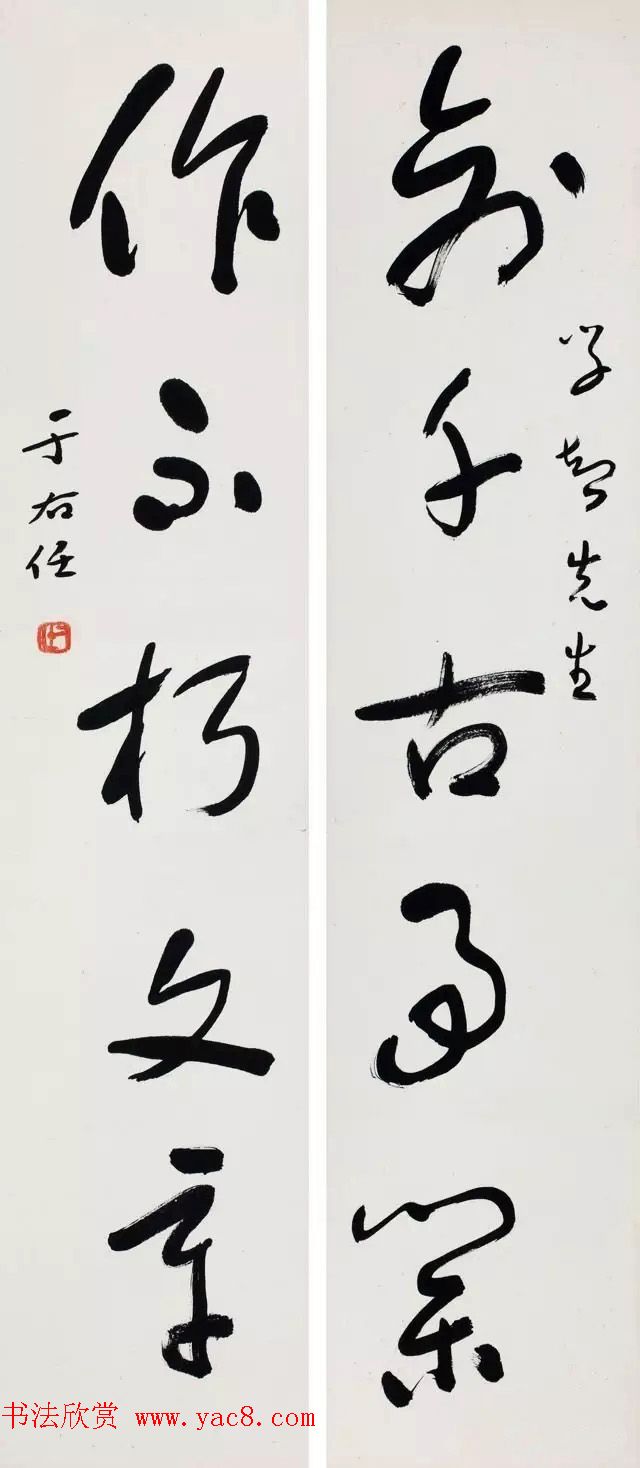 學智先生
創千古事業
作不朽文章
于右任
书法欣赏 www.yac8.com